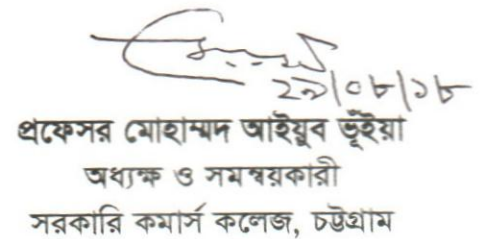 ২৯/০৮/১৮
প্রফেসর মোহাম্মদ আইয়ুব ভূঁইয়া
অধ্যক্ষ ও সমন্বয়কারী
সরকারি কমার্স কলেজ, চট্টগ্রাম